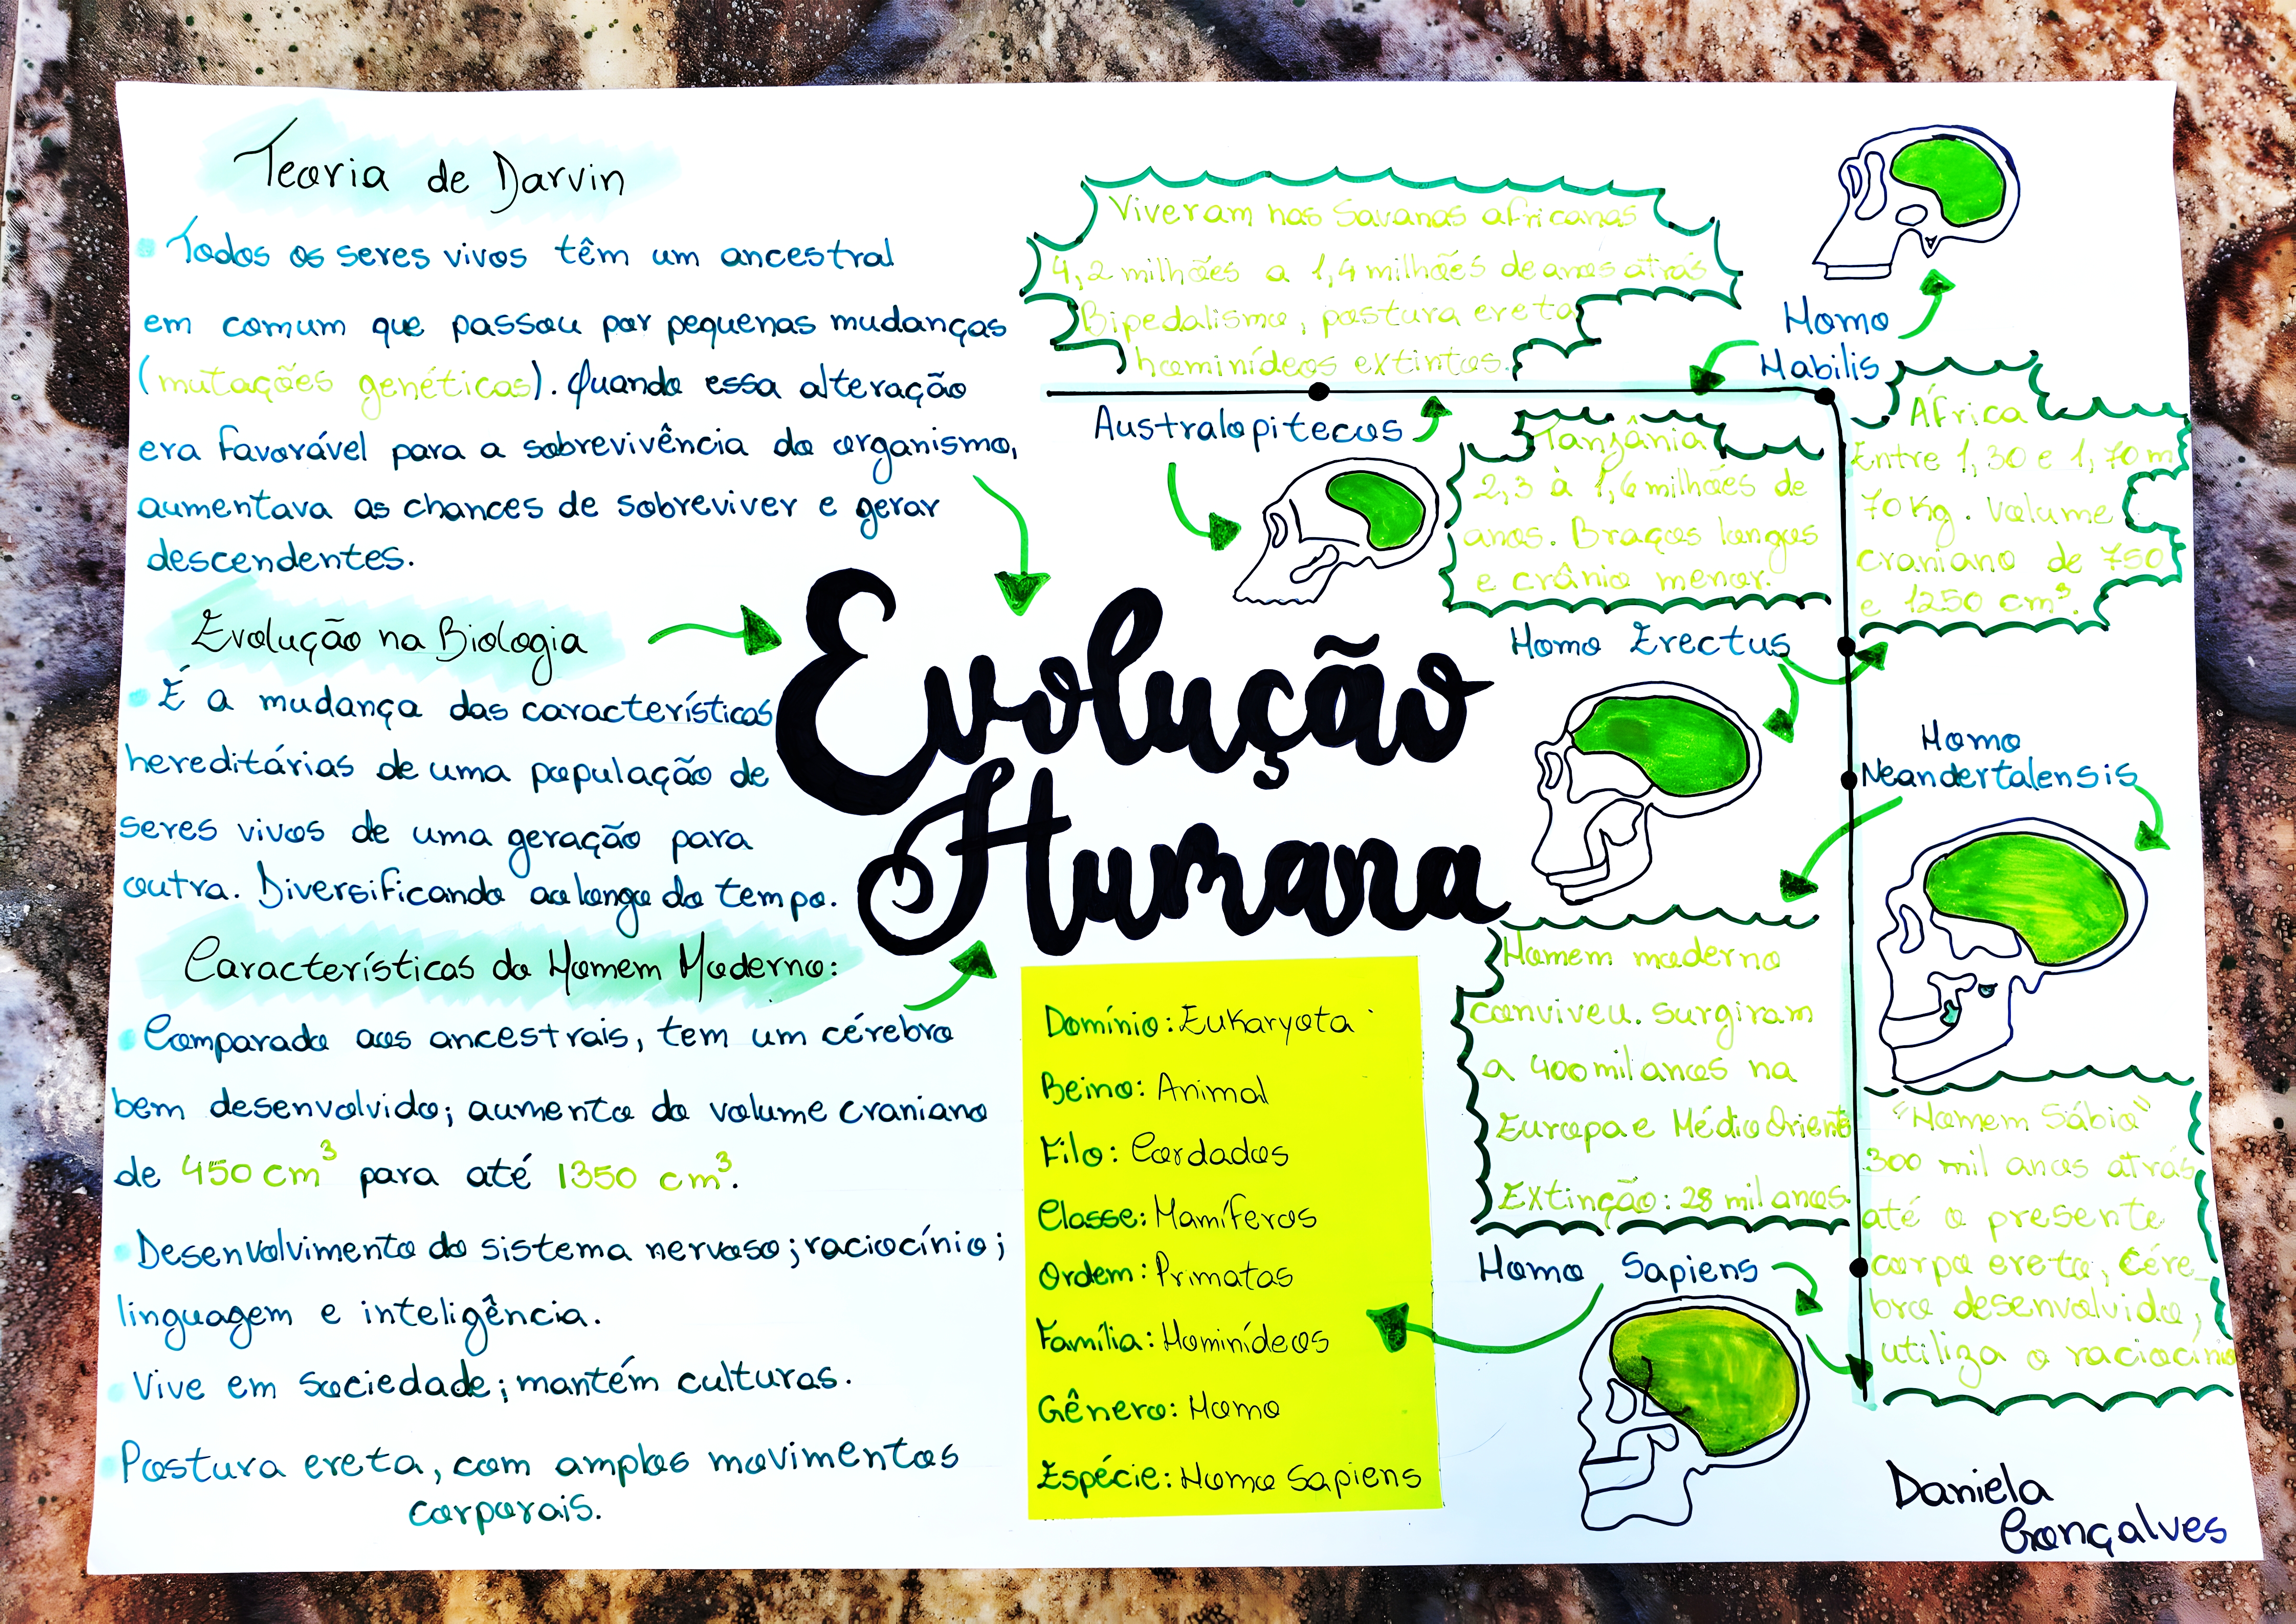 Teoria de Darvin
Todos os seres vivos têm um ancestral
em comum que passou por pequenas mudanças
(mutações genéticas). Quando essa alteração
era favorável para a sobrevivência do organismo,
aumentava as chances de sobreviver e gerar
descendentes.
Evolução na Biologia
É a mudança das características
hereditárias de uma população de
seres vivos de uma geração para
outra. Diversificando ao longo do tempo.
Características do Homem Moderno:
Comparado aos ancestrais, tem um cérebro
bem desenvolvido; aumento do volume craniano
de 450 cm³ para até 1350 cm³.
Desenvolvimento do sistema nervoso; raciocínio;
linguagem e inteligência.
Vive em sociedade; mantém culturas.
Postura ereta, com amplos movimentos
corporais.
Evolução
Humana
Viveram nas Savanas africanas
4,2 milhões a 1,4 milhões de anos atrás
Bipedalismo, postura ereta
hominídeos extintos.
Australopitecos
Homo
Habilis
Tanzânia
2,3 à 1,6 milhões de
anos. Braços longos
e crânio menor.
África
Entre 1,30 e 1,70 m
70 Kg. Volume
craniano de 750
e 1250 cm³.
Homo Erectus
Homo
Neandertalensis
Homem moderno
conviveu. Surgiram
a 400 mil anos na
Europa e Médio Oriente
Extinção: 28 mil anos.
Homo Sapiens
"Homem Sábio"
300 mil anos atrás
até o presente
corpo ereto, Cére_
bro desenvolvido,
utiliza o raciocínio
Domínio: Eukaryota
Beino: Animal
Filo: Cordados
Classe: Mamíferos
Ordem: Primatas
Família: Hominídeos
Gênero: Homo
Espécie: Homo Sapiens
Daniela
Gonçalves